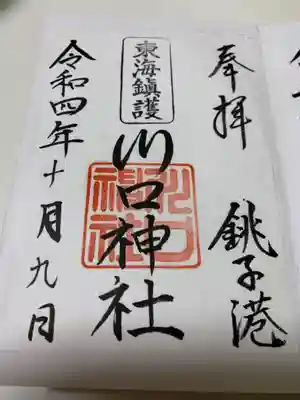 奉拝 銚子港
東海鎮護
川口神社
令和四年十月九日